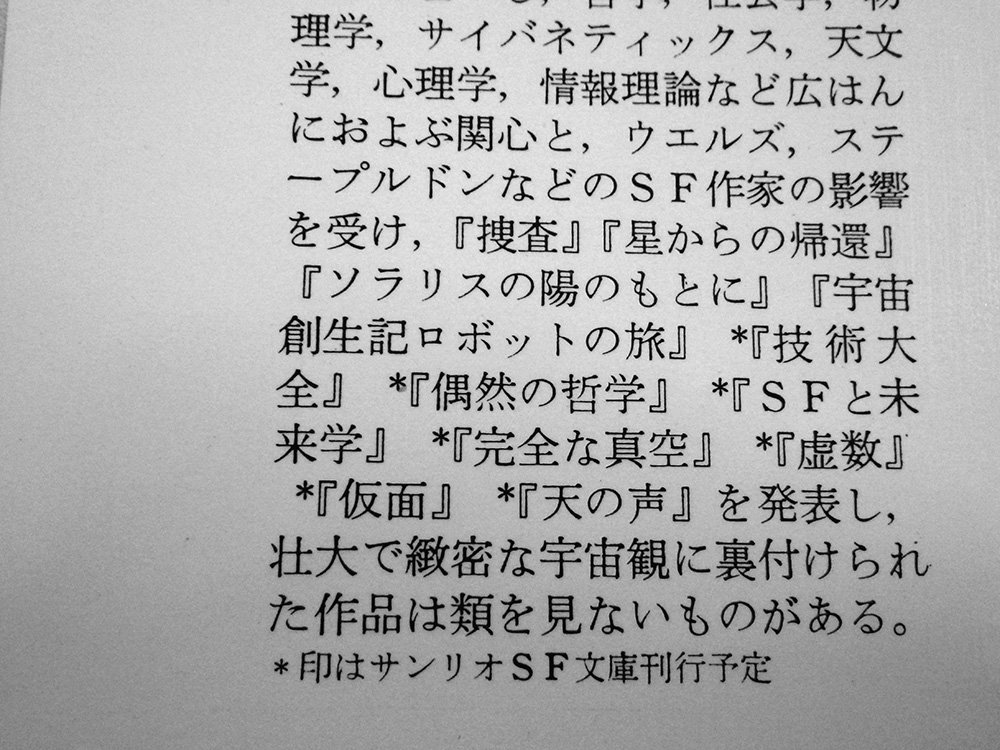 哲学，社会学，物
理学，サイバネティックス，天文
学，心理学，情報理論など広はん
におよぶ関心と，ウエルズ，ステ
ープルドンなどのＳＦ作家の影響
を受け，『捜査』『星からの帰還』
『ソラリスの陽のもとに』『宇宙
創生記ロボットの旅』 *『技術大
全』 *『偶然の哲学』 *『ＳＦと未
来学』 *『完全な真空』 *『虚数』
*『仮面』 *『天の声』を発表し，
壮大で緻密な宇宙観に裏付けられ
た作品は類を見ないものがある。
*印はサンリオＳＦ文庫刊行予定